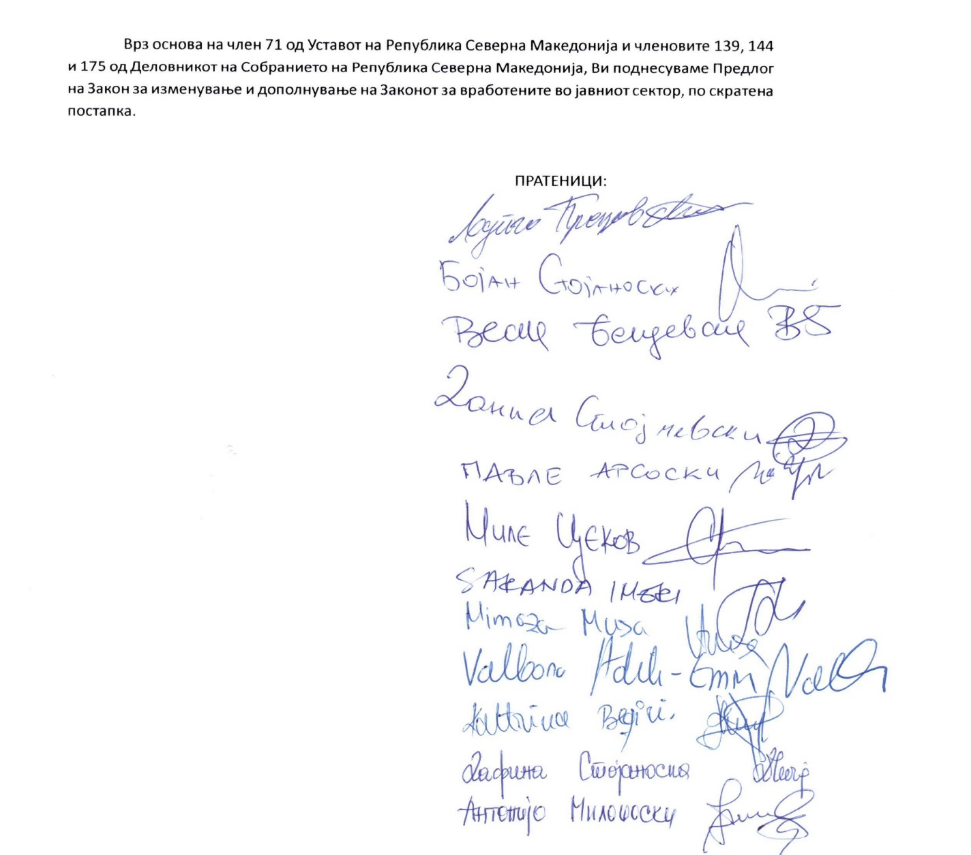 Врз основа на член 71 од Уставот на Република Северна Македонија и членовите 139, 144
и 175 од Деловникот на Собранието на Република Северна Македонија, Ви поднесуваме Предлог
на Закон за изменување и дополнување на Законот за вработените во јавниот сектор, по скратена
постапка.
ПРАТЕНИЦИ:
Бојан Стојаноски
Весна Бендевска ВБ
Стојмевски
ПАВЛЕ АРСОСКИ
Миле Цеков
Mimoza Musa
Valbona
Дафина Стојаноска
Антонијо Милошоски